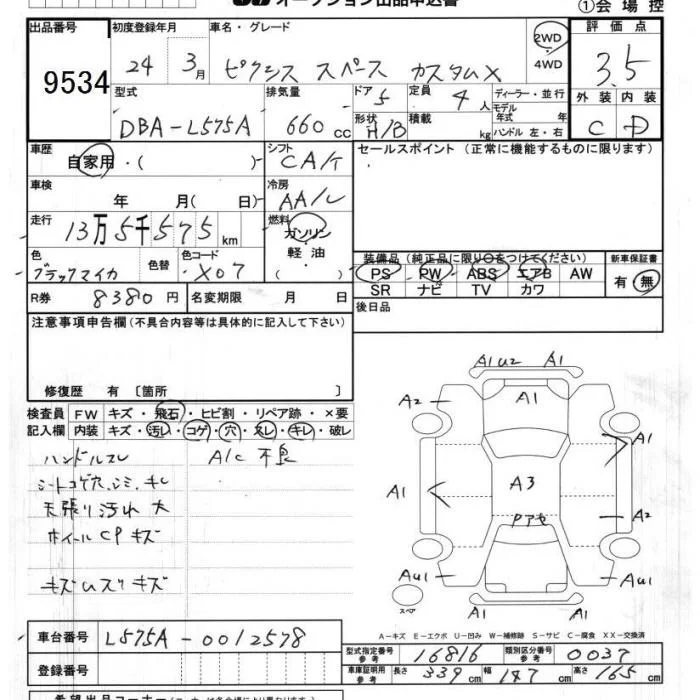 オークション出品申込書 ①会場控
出品番号 9534
初度登録年月 24 3月
車名・グレード ピクシス スペース カスタムX
2WD・4WD
評価点 3.5
外装 C 内装 D
型式 DBA-L575A
排気量 660cc
ドア 5 形状 H/B
定員 4人 積載 kg
ディーラー・並行
モデル年式 年
ハンドル 左・右
車歴 自家用・( )
シフト CA/T
セールスポイント(正常に機能するものに限ります)
車検 年 月(日)
冷房 AA/C
走行 13万5千575km
燃料 ガソリン・軽油・( )
色 ブラックマイカ 色替 色コード X07
装備品(純正品に限り○をつけてください)
PS PW ABS エアB AW
SR ナビ TV カワ
新車保証書 有・無
R券 8380円 名変期限 月 日
後日品
注意事項申告欄(不具合内容等は具体的に記入して下さい)
修復歴 有〔箇所 〕
検査員記入欄
FW キズ・飛石・ヒビ割・リペア跡・×要
内装 キズ・汚レ・コゲ・穴・スレ・キレ・破レ
ハンドルスレ A/C 不良
シートコゲ穴、シミ、キレ
天張り汚れ 大
ホイールCPキズ
A1U2 A1
A2 A1
A1 A1
A3
A2
AU1 AU1
A1 A1
スペア
A-キズ E-エクボ U-凹み W-補修跡 S-サビ C-腐食 XX-交換済
車台番号 L575A-0012578
登録番号
型式指定番号 参考 16816 類別区分番号 参考 0037
車庫証明用 参考 長さ 339cm 幅 147cm 高さ 165cm